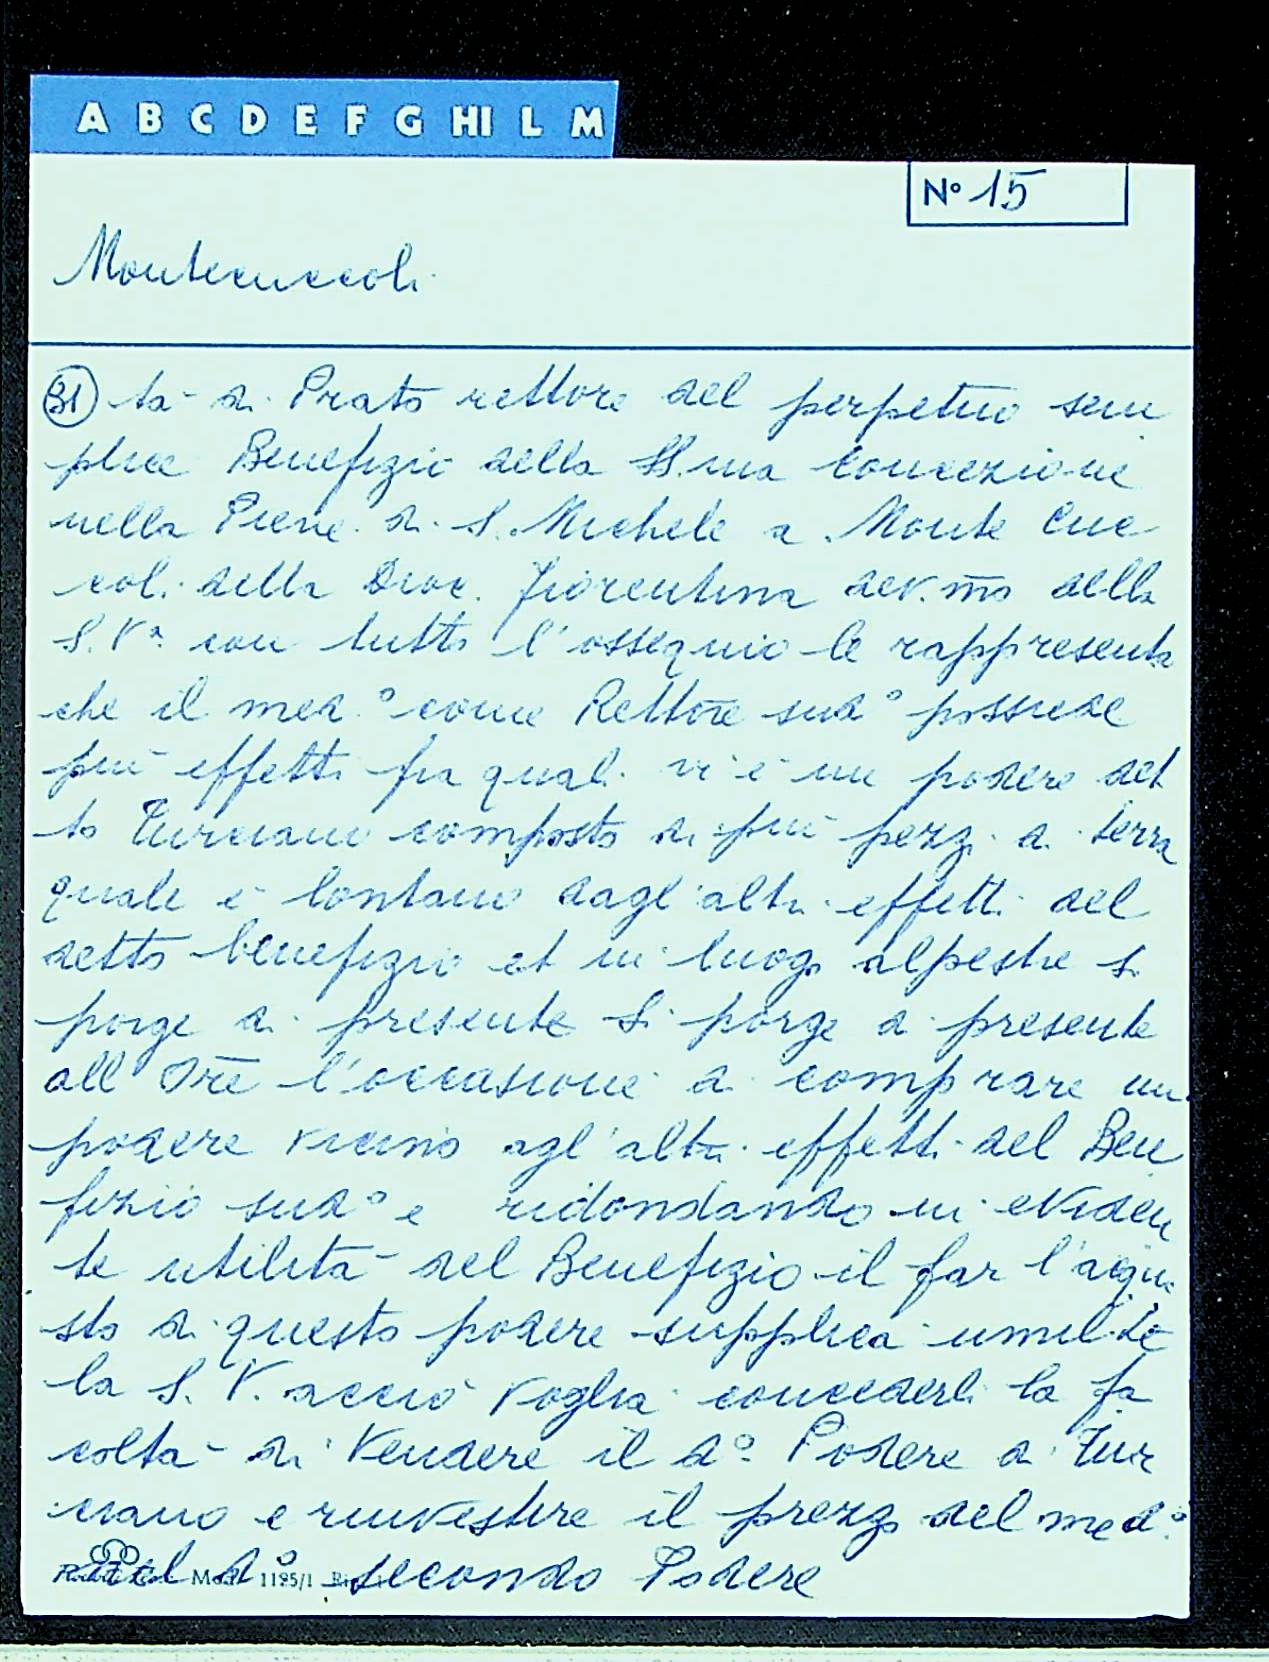 A B C D E F G HI L M
N° 15
Montecuccoli
31 tà di Prato rettore del perpetuo sem
plice Benefizio della SS.ma Concezione
nella Pieve di S. Michele a Monte Cuc
coli della Dioc. Fiorentina dev.mo della
S. V.a con tutto l'ossequio le rappresenta
che il med.° come Rettore sud° possiede
più effetti fra quali vi è un podere det
to Turciano composto di più pezzi di terra
quale è lontano dagl'altri effetti del
detto benefizio et in luogo alpestre si
porge di presente Si porge di presente
all'Ore l'occasione di comprare un
podere vicino agl'altri effetti del Ben
fizio sud° e ridondando in eviden
te utilità del Benefizio il far l'acqui
sto di questo podere supplica umil.te
la S. V. acciò voglia concederli la fa
coltà di Vendere il d° Podere di Tur
ciano e rinvestire il prezzo del med.°
nel d° secondo Podere
Mod. 1195/1